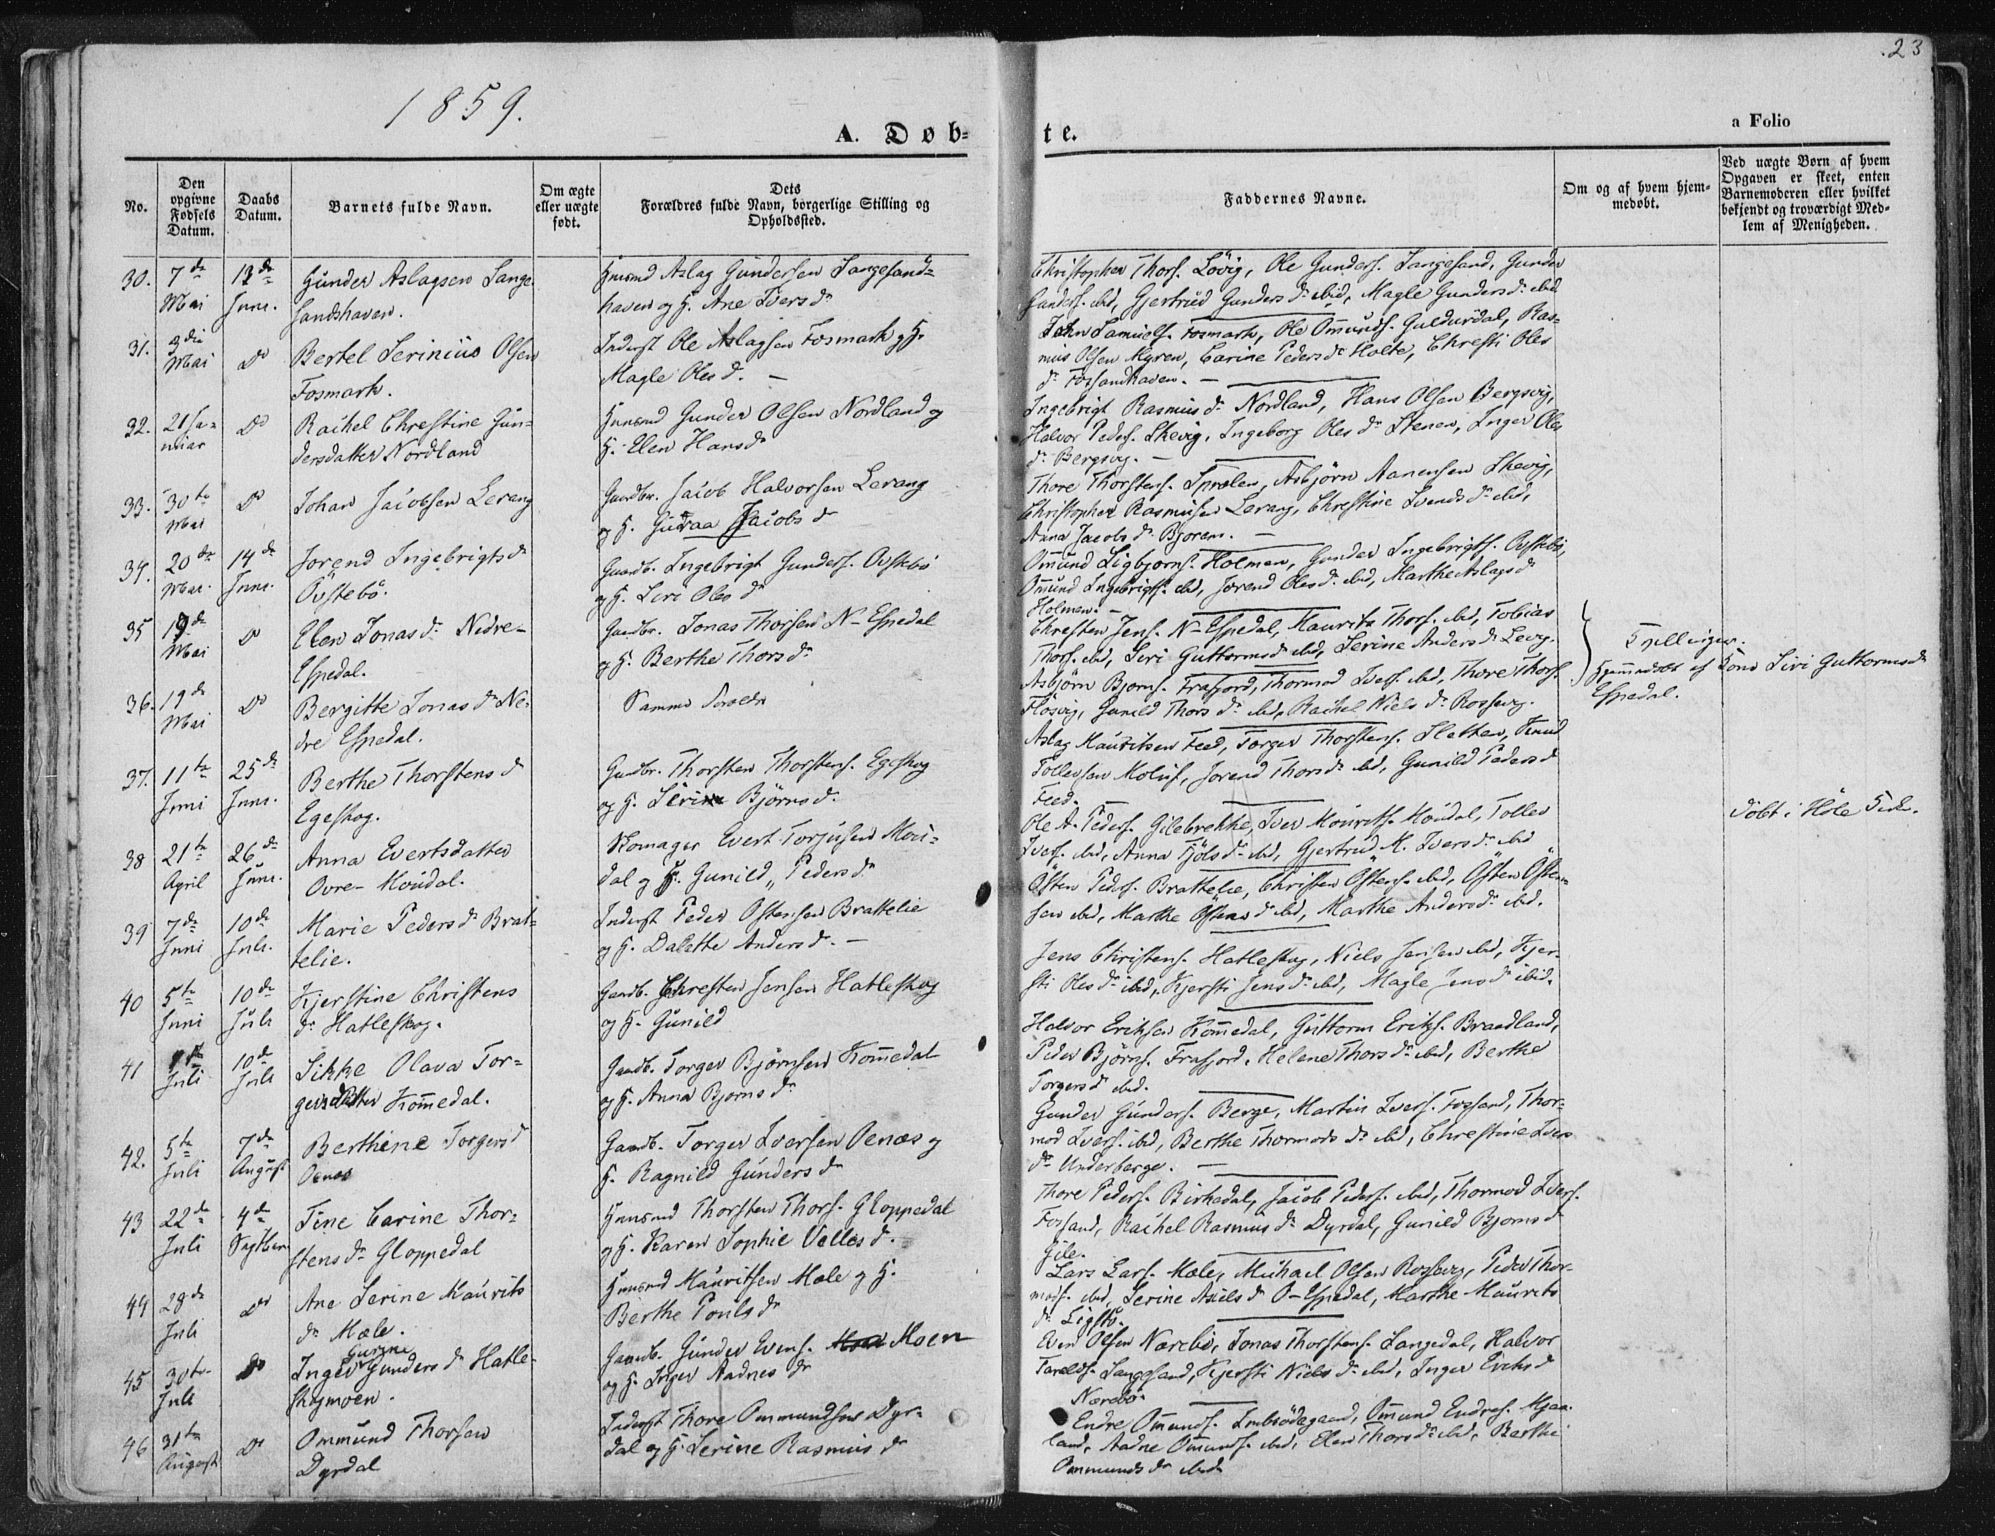 23
1859.
a Folio
A. Døb-
te.
No.
Den
opgivne
Fødsels
Datum.
Daabs
Datum.
Barnets fulde Navn.
Om ægte
eller uægte
født.
Dets
Forældres fulde Navn, borgerlige Stilling og
Opholdssted.
Faddernes Navne.
Om og af hvem hjem-
medøbt.
Ved uægte Børn af hvem
Opgaven er skeet, enten
Barnemoderen eller hvilket
bekjendt og troværdigt Med-
lem af Menigheden.
30. 7de Mai
13de Juni.
Gunder Aslagsen Lange-
sandshaven.
Huusmd Aslag Gundersen Langesand-
haven og H. Ane Iversdr
Christopher Thors. Løvig, Ole Gunders. Langesand, Gunder
Gunders. ibid, Gjertrud Gundersdr ibid, Magle Gundersdr ibid
31. 3die Mai
Do
Bertel Serinius Olsen
Fosmark.
Inderst Ole Aslagsen Fosmark og H.
Magle Olesd. —
John Samuels. Fosmark, Ole Omunds. Guldurdal, Ras-
mus Olsen Myren, Carine Pedersdr Holte, Christi Oles
dr Fossandhaven. —
32. 21 Ja-
nuar
Do
Rachel Christine Gun-
dersdatter Nordland
Huusmd Gunder Olsen Nordland og
H. Elen Hansdr
Ingebrigt Rasmusdr Nordland, Hans Olsen Bergsvig,
Halvor Peders. Skevig, Ingeborg Olesdr Stenen, Inger Oles
dr Bergsvig. —
33. 30te Mai
Do
Johan Jacobsen Lerang
Gaardbr. Jacob Halvorsen Lerang
og H. Guraa Jacobsdr
Thore Thorstens. Sprælen, Asbjørn Aanensen Skevig,
Christopher Rasmusen Lerang, Christine Svendsdr ibid,
Anna Jacobsdr Bjoren. —
34. 20de Mai.
14de Juni.
Jorend Ingebrigtsdr
Øvstebø.
Gaardb. Ingebrigt Gunders. Øvstebø
og H. Siri Olesdr
Omund Sigbjorns. Holmen, Gunder Ingebrigts. Øvstebø,
Omund Ingebrigts. ibid, Jorend Olesd. ibid, Marthe Aslagsd
Holmen. —
35 19de Mai
Do
Elen Jonasdr Nedre-
Espedal.
Gaardbr. Jonas Thorsen N-Espedal
og H. Berthe Thorsdr
Christen Jens. N-Espedal, Maurits Thors. ibid, Tobias
Thors. ibid, Siri Guttormsdr ibid, Serine Andersdr
36. 19de Mai
Do
Bergitte Jonasdr Ne-
dre Espedal.
Samme Forældre
Asbjørn Bjorns. Frafjord, Thormod Ivers. ibid, Thore Thors.
Fløsvig, Gunild Thorsdr ibid, Rachel Nielsdr Rossavig.
Tvillinger.
Hjemmedøbt af Kone Siri Guttormsdr
Espedal.
37. 11te Juni
25de Juni.
Berthe Thorstensd
Egeskog.
Gaardbr. Thorsten Thorstens. Egeskog
og H. Serine Bjørnsdr.
Aslag Mauritsen Feed, Torger Thorstens. Sletten, Knud
Tollevsen Moluf, Jorend Thorsdr ibid, Gunild Pedersd
Feed.
38 21te April
26de Juni.
Anna Evertsdatter
Øvre-Moudal.
Skomager Evert Torjusen Mou-
dal og H. Gunild Pedersdr
Ole A. Peders. Gilebrekke, Iver Mourits. Moudal, Tollev
Ivers. ibid, Anna Tjølsdr ibid, Gjertrud M. Iversdr ibid
Døbt i Høle Kirke.
39 7de Juni
10de Juli.
Marie Pedersd Brat-
telie.
Inderst Peder Østensen Brattelie
og H. Dalette Andersd. —
Østen Peders. Brattelie, Christen Østens. ibid, Østen Østen-
sen ibid, Marthe Østensd ibid, Marthe Andersdr ibid.
40 5te Juni
10de Juli
Kjerstine Christens
dr Hatleskog.
Gaardb. Christen Jensen Hatleskog
og H. Gunild
Jens Christens. Hatleskog, Niels Jensen ibid, Kjer-
sti Olesdr ibid, Kjersti Jensdr ibid, Magle Jensd ibid.
41
Juli
10de Juli
Sikke Olava Tor-
gersdatter Kommedal.
Gaardb. Torger Bjørnsen Kommedal
og H. Anna Bjornsdr
Halvor Eriksen Kommedal, Guttorm Eriks. Braadland,
Peder Bjørns. Frafjord, Helene Thorsdr ibid, Berthe
Torgersdr ibid.
42. 5te Juli
7de August
Berthine Torgersd
Oenæs
Gaardb. Torger Iversen Oenæs og
H. Ragnild Gundersdr
Gunder Gunders. Berge, Martin Ivers. Fossand, Thor-
mod Ivers. ibid, Berthe Thormodsdr ibid, Christine Ivers
dr Underberge. —
43 22de Juli
4de Septbr.
Tine Carine Thor-
stensdr Gloppedal
Huusmd Thorsten Thors. Gloppedal
og H. Karen Sophie Vellesd.
Thore Peders. Birkedal, Jacob Peders. ibid, Thormod Ivers.
Fossand, Rachel Rasmusdr Dyrdal, Gunild Bjornsd
Gile.
44 28de Juli
Do
Ane Serine Maurits
dr Mæle.
Huusmd Mauritsen Mæle og H.
Berthe Poulsdr
Lars Lars. Mæle, Michael Olsen Rossavig, Peder Thor-
mods. ibid, Serine Axelsdr O-Espedal, Marthe Maurits
dr
45 30te Juli
Do
Inger Gurine Gundersdr Hatle-
skogmoen.
Gaardb. Gunder Evens. Moen
og H. Inger Aadnesdr
Even Olsen Nærebø, Jonas Thorstens. Langedal, Halvor
Tarelds. Langesand, Kjersti Nielsdr ibid, Inger Eviksd
Nærebø.
46 31te August
Do
Ommund Thorsen
Dyrdal
Inderst Thore Ommundsen Dyr-
dal og H. Serine Rasmusdr
Endre Omunds. Indrødegaard, Omund Endres. Mjaa-
land, Aadne Omunds. ibid, Elen Thorsdr ibid, Berthe
Ommundsdr ibid